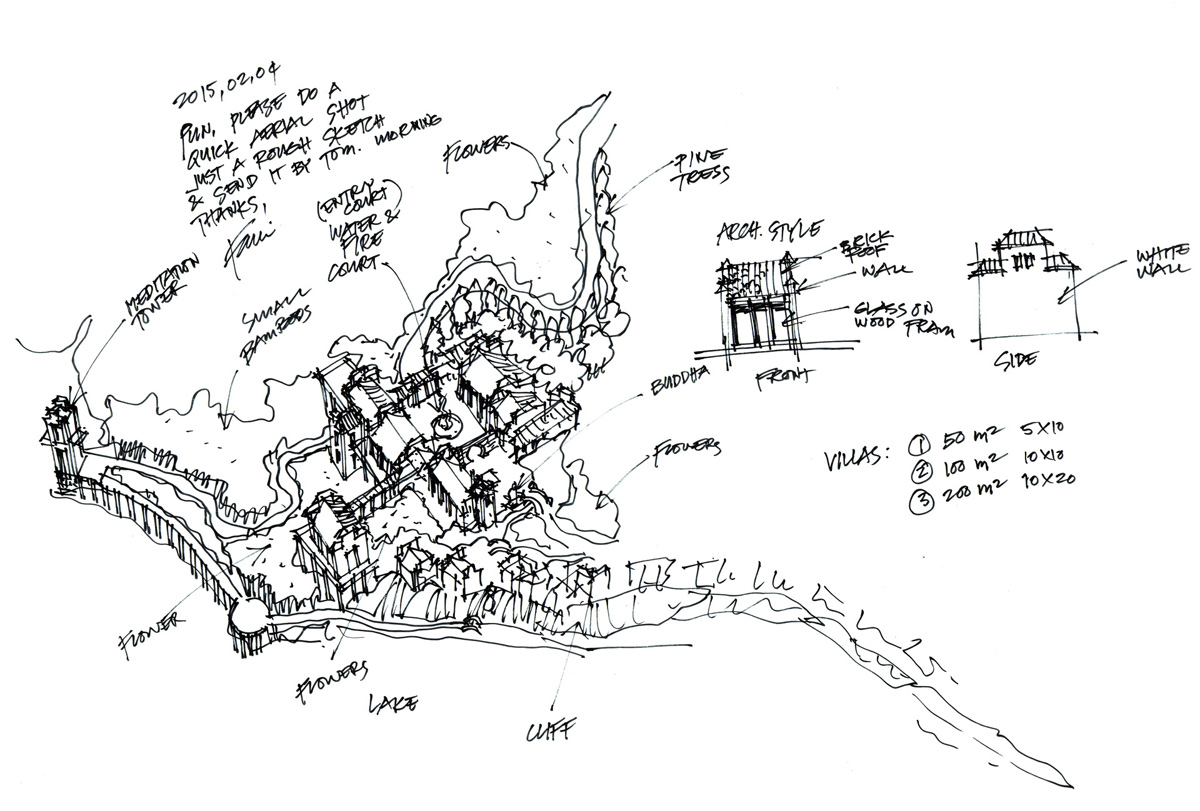 2015,02,04
PUN, PLEASE DO A
QUICK AERIAL SHOT
JUST A ROUGH SKETCH
& SEND IT BY TOM. MORNING
THANKS,
FLOWERS
PINE
TRESS
(ENTRY
COURT)
WATER &
FIRE
COURT
MEDITATION
TOWER
SMALL
BAMBOOS
ARCH. STYLE
BRICK
ROOF
WALL
GLASS ON
WOOD FRAM
FRONT
WHITE
WALL
SIDE
BUDDHA
FLOWERS
VILLAS: ① 50 m² 5X10
② 100 m² 10X10
③ 200 m² 10X20
FLOWER
FLOWERS
LAKE
CLIFF